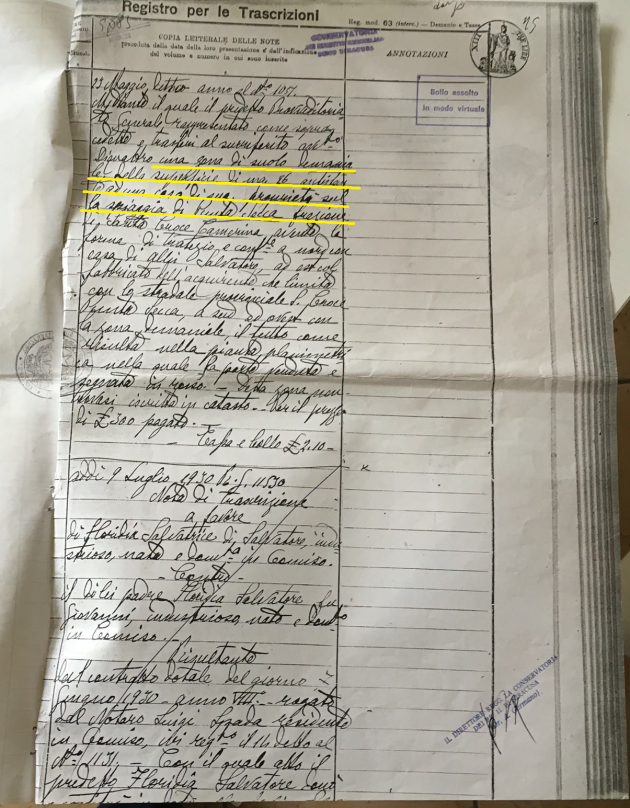 Registro per le Trascrizioni
Reg. mod. 63 (Interc.) — Demanio e Tasse
COPIA LETTERALE DELLE NOTE
preceduta dalla data della loro presentazione e dall'indicazione
del volume e numero in cui sono inserite
ANNOTAZIONI
CONSERVATORIA
Bollo assolto
in modo virtuale
23 Maggio, detto anno al N.ro 1051.
Mediante il quale il predetto Provveditorato
Generale rappresentato come sopra
cedette e trasferì al surriferito
Dipuatro una zona di suolo demania
le della superficie di mq. 86 antistan
te ad una casa di sua proprietà sul
la spiaggia di Punta Secca frazione
di Santa Croce Camerina avente la
forma di trapezio, e conf.te a nord con
casa di Salvatore, ad est col
fabbricato dell'acquirente che limita
con lo stradale provinciale S. Croce
Punta Secca, a sud ed ovest con
la zona demaniale, il tutto come
risulta nella pianta planimetri
ca nella quale la parte venduta è
segnata in rosso. — Detta zona non
trovasi iscritta in catasto. — Per il prezzo
di £. 300 pagato. —
— Tassa e bollo £ 2.10 —
addì 9 Luglio 1930 11530
Nota di trascrizione
a favore
di Floridia Salvatrice di Salvatore, indu
striosa, nata e dom.ta in Comiso.
— Contro —
il di lei padre Floridia Salvatore fu
Giovanni, industrioso, nato e dom.to
in Comiso.
Risultante
dal contratto dotale del giorno
Giugno 1930 — anno VIII. — rogato
dal Notaro Luigi Spada residente
in Comiso, ivi reg.to il 11 detto al
N.ro 1131. — Con il quale atto il
predetto Floridia Salvatore
IL DIRETTORE REGG. LA CONSERVATORIA